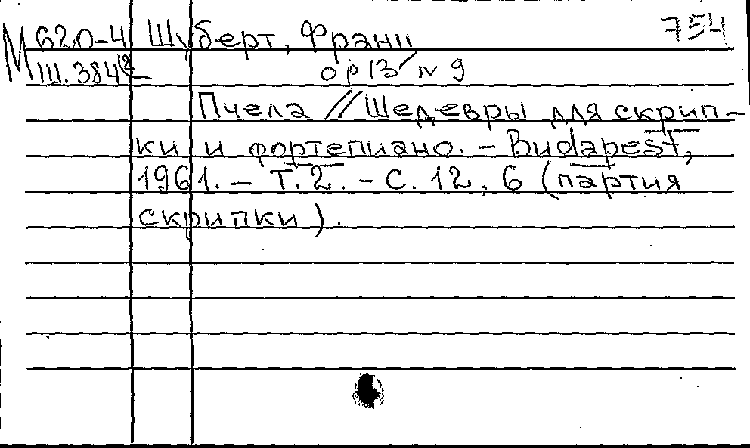 М 620-4 Шуберт, Франц 754
Ш. 384
op 13 № 9
Пчела // Шедевры для скрип-
ки и фортепиано. - Budapest,
1961. - Т. 2. - С. 12, 6 (партия
скрипки).